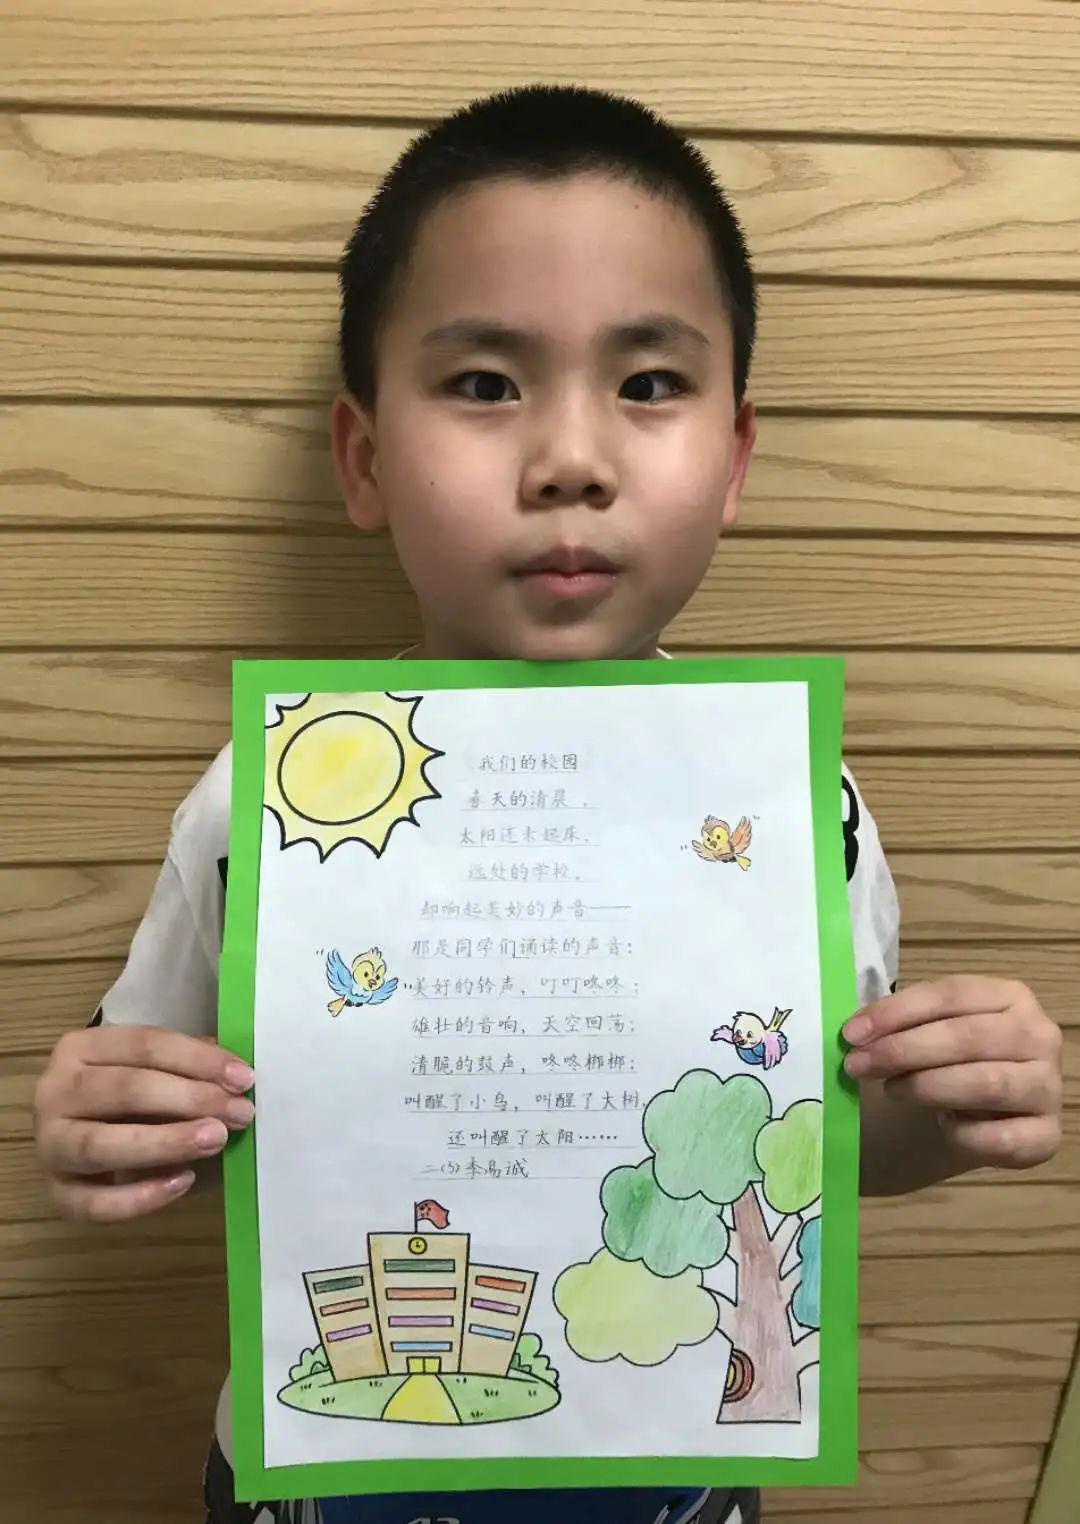 我们的校园
春天的清晨，
太阳还未起床，
远处的学校，
却响起美妙的声音——
那是同学们诵读的声音：
美好的铃声，叮叮咚咚；
雄壮的音响，天空回荡；
清脆的鼓声，咚咚梆梆；
叫醒了小鸟，叫醒了大树，
还叫醒了太阳……
二(3)李易诚